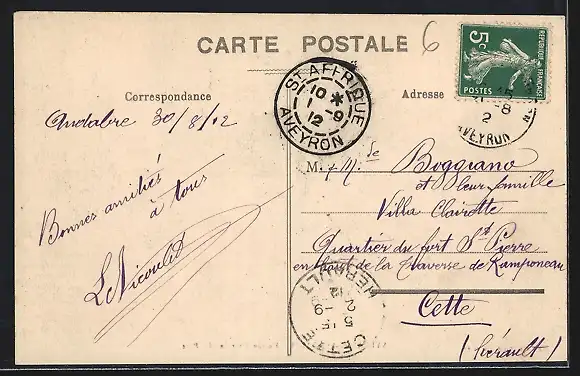 CARTE POSTALE
6
Correspondance
Adresse
5c
POSTES
REPUBLIQUE FRANÇAISE
ST AFFRIQUE
10 *
1 -9
12
AVEYRON
-8
2
AVEYRON
Andabre 30/8/12
Bonnes amitiés
à tous
M. & M. de Boggiano
et leur famille
Villa Clairette
Quartier du fort St Pierre
en haut de la traverse de Ramponeau
Cette
(hérault)
CETTE
15
1 -9
12
HERAULT